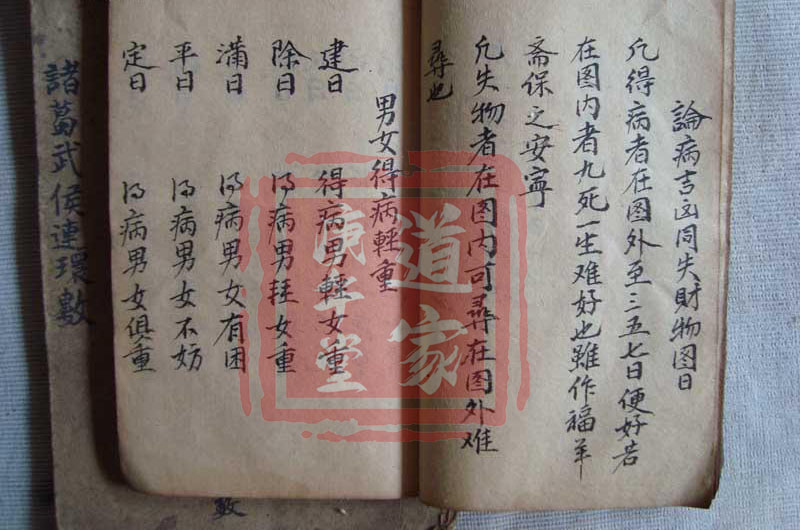 論病吉凶同失財物图日
凢得病者在图外至三五七日便好若
在图内者九死一生难好也雖作福羊
斋保之安寧
凢失物者在图内可尋在图外难
尋也
男女得病輕重
建日 得病男輕女重
除日 得病男轻女重
满日 得病男女有困
平日 得病男女不妨
定日 得病男女俱重
諸葛武侯連環數
數
道家
堂